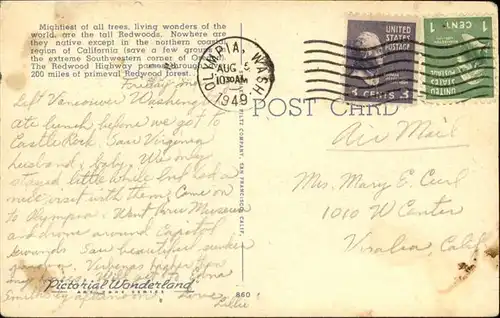 Mightiest of all trees, living wonders of the
world, are the tall Redwoods. Nowhere are
they native except in the northern coastal
region of California (save a few groves in
the extreme Southwestern corner of
The Redwood Highway passes through
200 miles of primeval Redwood forest.
OLYMPIA, WASH.
AUG 5
10 30 AM
1949
UNITED STATES POSTAGE
3 CENTS 3
1 CENT 1
UNITED STATES POSTAGE
POST CARD
Air Mail
Friday
Left Vancouver Washington
ate lunch before we got to
Castle Rock. Saw Virginia
husband & baby. We only
stayed little while but had a
nice visit with them. Came on
to Olympia. Went thru Museum
and drove around Capitol
grounds Saw beautiful sunken
garden.
Love,
Pictorial Wonderland
ART TONE SERIES
860
Mrs. Mary E. Curl
1010 W Center
Visalia, Calif
PILTZ COMPANY, SAN FRANCISCO, CALIF.